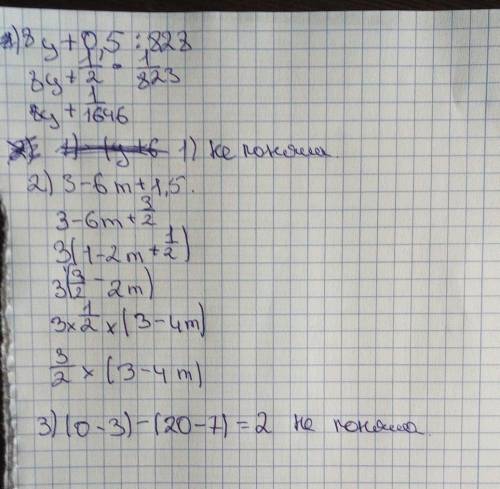 1) 8y + 0,5 : 823
8y + 1/2 · 1/823
8y + 1/1646
1) не поняла.
2) 3 - 6m + 1,5.
3 - 6m + 3/2
3(1 - 2m + 1/2)
3(3/2 - 2m)
3 × 1/2 × (3 - 4m)
3/2 × (3 - 4m)
3) (0 - 3) - (20 - 7) = 2 не поняла.